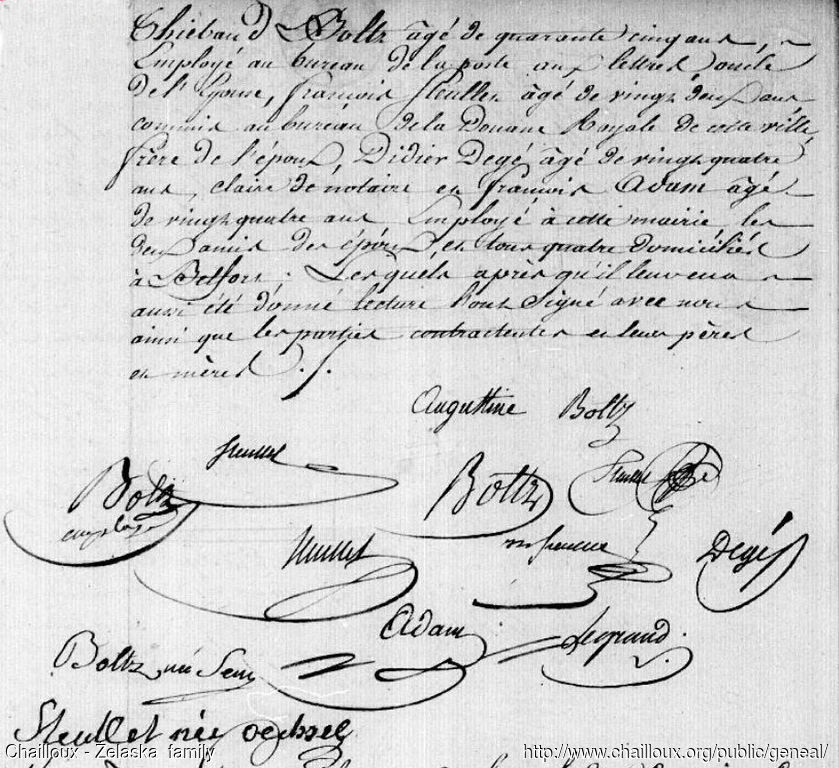 Thiebaud Boltz âgé de quarante cinq ans,
Employé au bureau de la poste aux lettres, oncle
de l'Epouse, françois Steullet âgé de vingt deux ans
commis au bureau de la Douane Royale de cette ville,
frère de l'époux, Didier Degé âgé de vingt quatre
ans, clairc de notaire et françois Adam âgé
de vingt quatre ans Employé à cette mairie les
deux amis des époux, et tous quatre domiciliés
à Belfort; Lesquels après qu'il leur en a
aussi été donné lecture l'ont signé avec nous
ainsi que les parties contractantes et leurs pères
et mères ./.
Augustine Boltz
Steullet
Boltz
Boltz
employé
Steullet
Degé
Adam
Legrand
Boltz née
Steullet née
Chailloux - Zelaska family
http://www.chailloux.org/public/geneal/